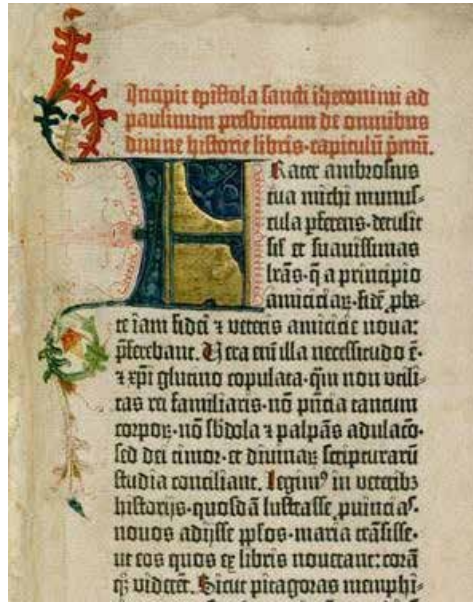 Incipit epistola sancti iheronimi ad
paulinum presbiterum de omnibus
divine historie libris·capitulū p̄mū.
FRater ambrosius
tua michi munus-
cula pferens·detulit
sil̄ et suavissimas
lr̄as·q̄ a principio
amiciciaꝝ·fidē pba-
te iam fidei ⁊ veteris amicicie nova:
pferebant. Vera em̄ illa necessitudo ē·
⁊ xp̄i glutino copulata·q̄m non utili-
tas rei familiaris·nō pn̄tia tantum
corpoꝝ·nō sb̄dola ⁊ palpās adulac̄o·
sed dei timor·et divinaꝝ scripturarū
studia conciliant. Legim⁹ in veterib⁹
historijs·quosdā lustrasse ꝓvincias·
novos adijsse pplos·maria trāsisse·
ut eos quos ex libris noverant: corā
qꝫ viderēt. Sicut pitagoras memphi-